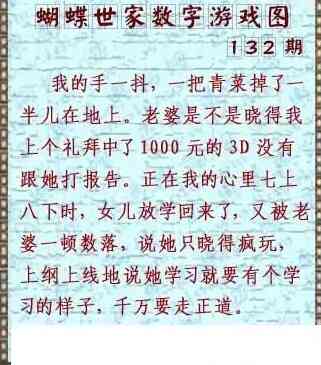 蝴蝶世家数字游戏图
132期
我的手一抖，一把青菜掉了一
半儿在地上。老婆是不是晓得我
上个礼拜中了1000元的3D没有
跟她打报告。正在我的心里七上
八下时，女儿放学回来了，又被老
婆一顿数落，说她只晓得疯玩，
上纲上线地说她学习就要有个学
习的样子，千万要走正道。